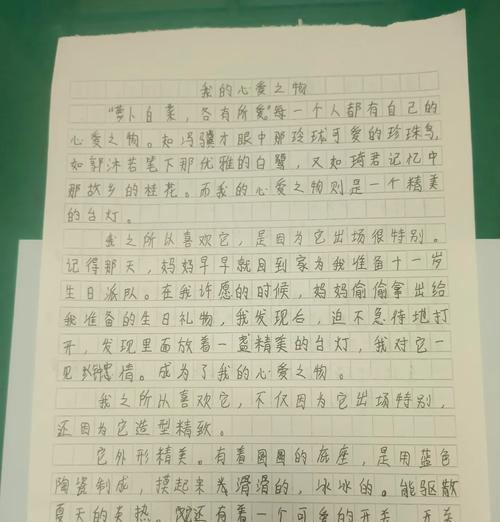 我的心爱之物
“萝卜白菜，各有所爱”每一个人都有自己的
心爱之物。如冯骥才眼中那玲珑可爱的珍珠鸟，
如郭沐若笔下那优雅的白鹭，又如琦君记忆中
那故乡的桂花。而我的心爱之物则是一个精美
的台灯。
我之所以喜欢它，是因为它出场很特别。
记得那天，妈妈早早就回到家为我准备十一岁
生日派队。在我许愿的时候，妈妈偷偷拿出给
我准备的生日礼物，我发现后，迫不急待地打
开，发现里面放着一盏精美的台灯，我对它一
见钟情。成为了我的心爱之物。
我之所以喜欢它，不仅因为它出场特别，
还因为它造型精致。
它外形精美。有着圆圆的底座，是用蓝色
陶瓷制成，摸起来滑滑的，冰冰的。能驱散
夏天的炎热。还有着一个可爱的开关，开关